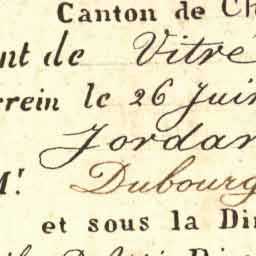 Canton de Ch
nt de Vitré
rrein le 26 Juin
Jordan
Mr. Dubourg
et sous la Di